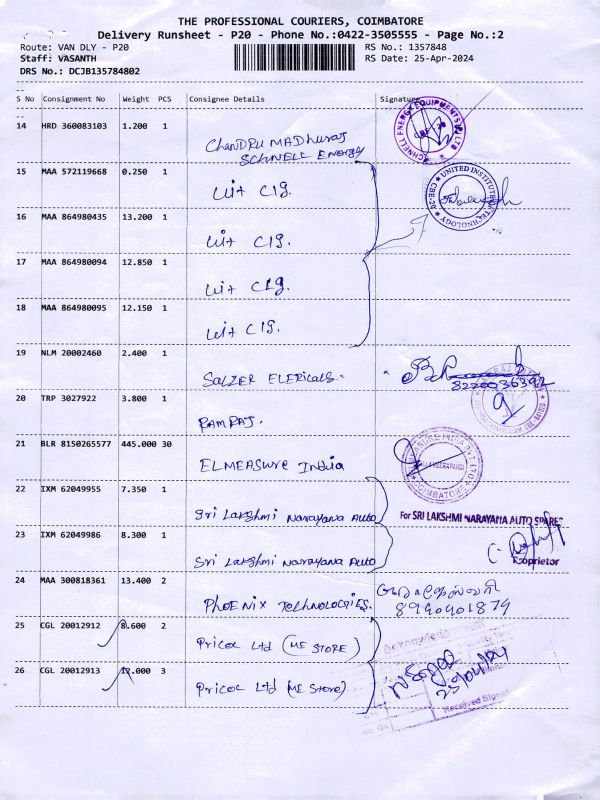 THE PROFESSIONAL COURIERS, COIMBATORE
Delivery Runsheet - P20 - Phone No.:0422-3505555 - Page No.:2
Route: VAN DLY - P20
RS No.: 1357848
Staff: VASANTH
RS Date: 25-Apr-2024
DRS No.: DCJB135784802
S No Consignment No Weight PCS Consignee Details Signature
14 HRD 360083103 1.200 1
CHANDRU MADHURAJ
SCHNELL ENERGY
SCHNELL ENERGY EQUIPMENTS (P) LTD
15 MAA 572119668 0.250 1
Uit Clg.
UNITED INSTITUTE OF TECHNOLOGY CBE-20
16 MAA 864980435 13.200 1
Uit Clg.
17 MAA 864980094 12.850 1
Uit Clg.
18 MAA 864980095 12.150 1
Uit Clg.
19 NLM 20002460 2.400 1
SALZER ELERICALS.
20 TRP 3027922 3.800 1
RAMRAJ.
21 BLR 8150265577 445.000 30
ELMEASURE India
COIMBATORE
22 IXM 62049955 7.350 1
Sri Lakshmi Narayana Auto
For SRI LAKSHMI NARAYANA AUTO SPARES
23 IXM 62049986 8.300 1
Sri Lakshmi Narayana Auto
Proprietor
24 MAA 300818361 13.400 2
PHOENIX Technologies.
25 CGL 20012912 8.600 2
Pricol Ltd (ME STORE)
26 CGL 20012913 12.000 3
Pricol Ltd (ME Store)
25/04/24
Received Sign